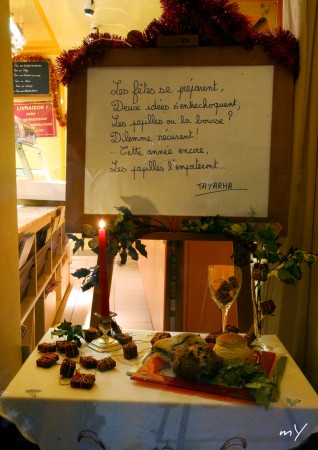 Les fêtes se préparent,
Deux idées s'entrechoquent;
Les papilles ou la bourse ?
Dilemme récurant !
...Cette année encore,
Les papilles l'emporteront...
TAYARHA
LIVRAISON
mY